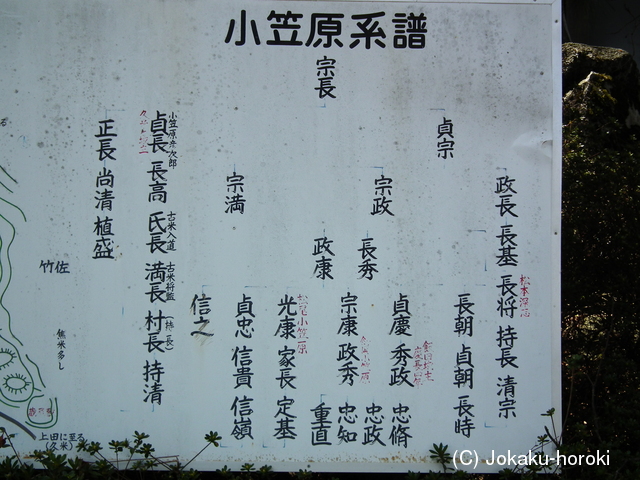 小笠原系譜
宗長
貞宗
政長 長基 長将 持長 清宗
長朝 貞朝 長時
宗政
長秀
貞慶 秀政 忠脩
忠政
宗康 政秀 忠知
政康
重直
松尾小笠原
光康 家長 定基
宗満
貞忠 信貴 信嶺
信之
小笠原彦次郎
貞長 長高 氏長 満長 村長 持清
古米入道
古米将監
正長 尚清 植盛
竹佐
上田に至る
(久米)
(C) Jokaku-horoki